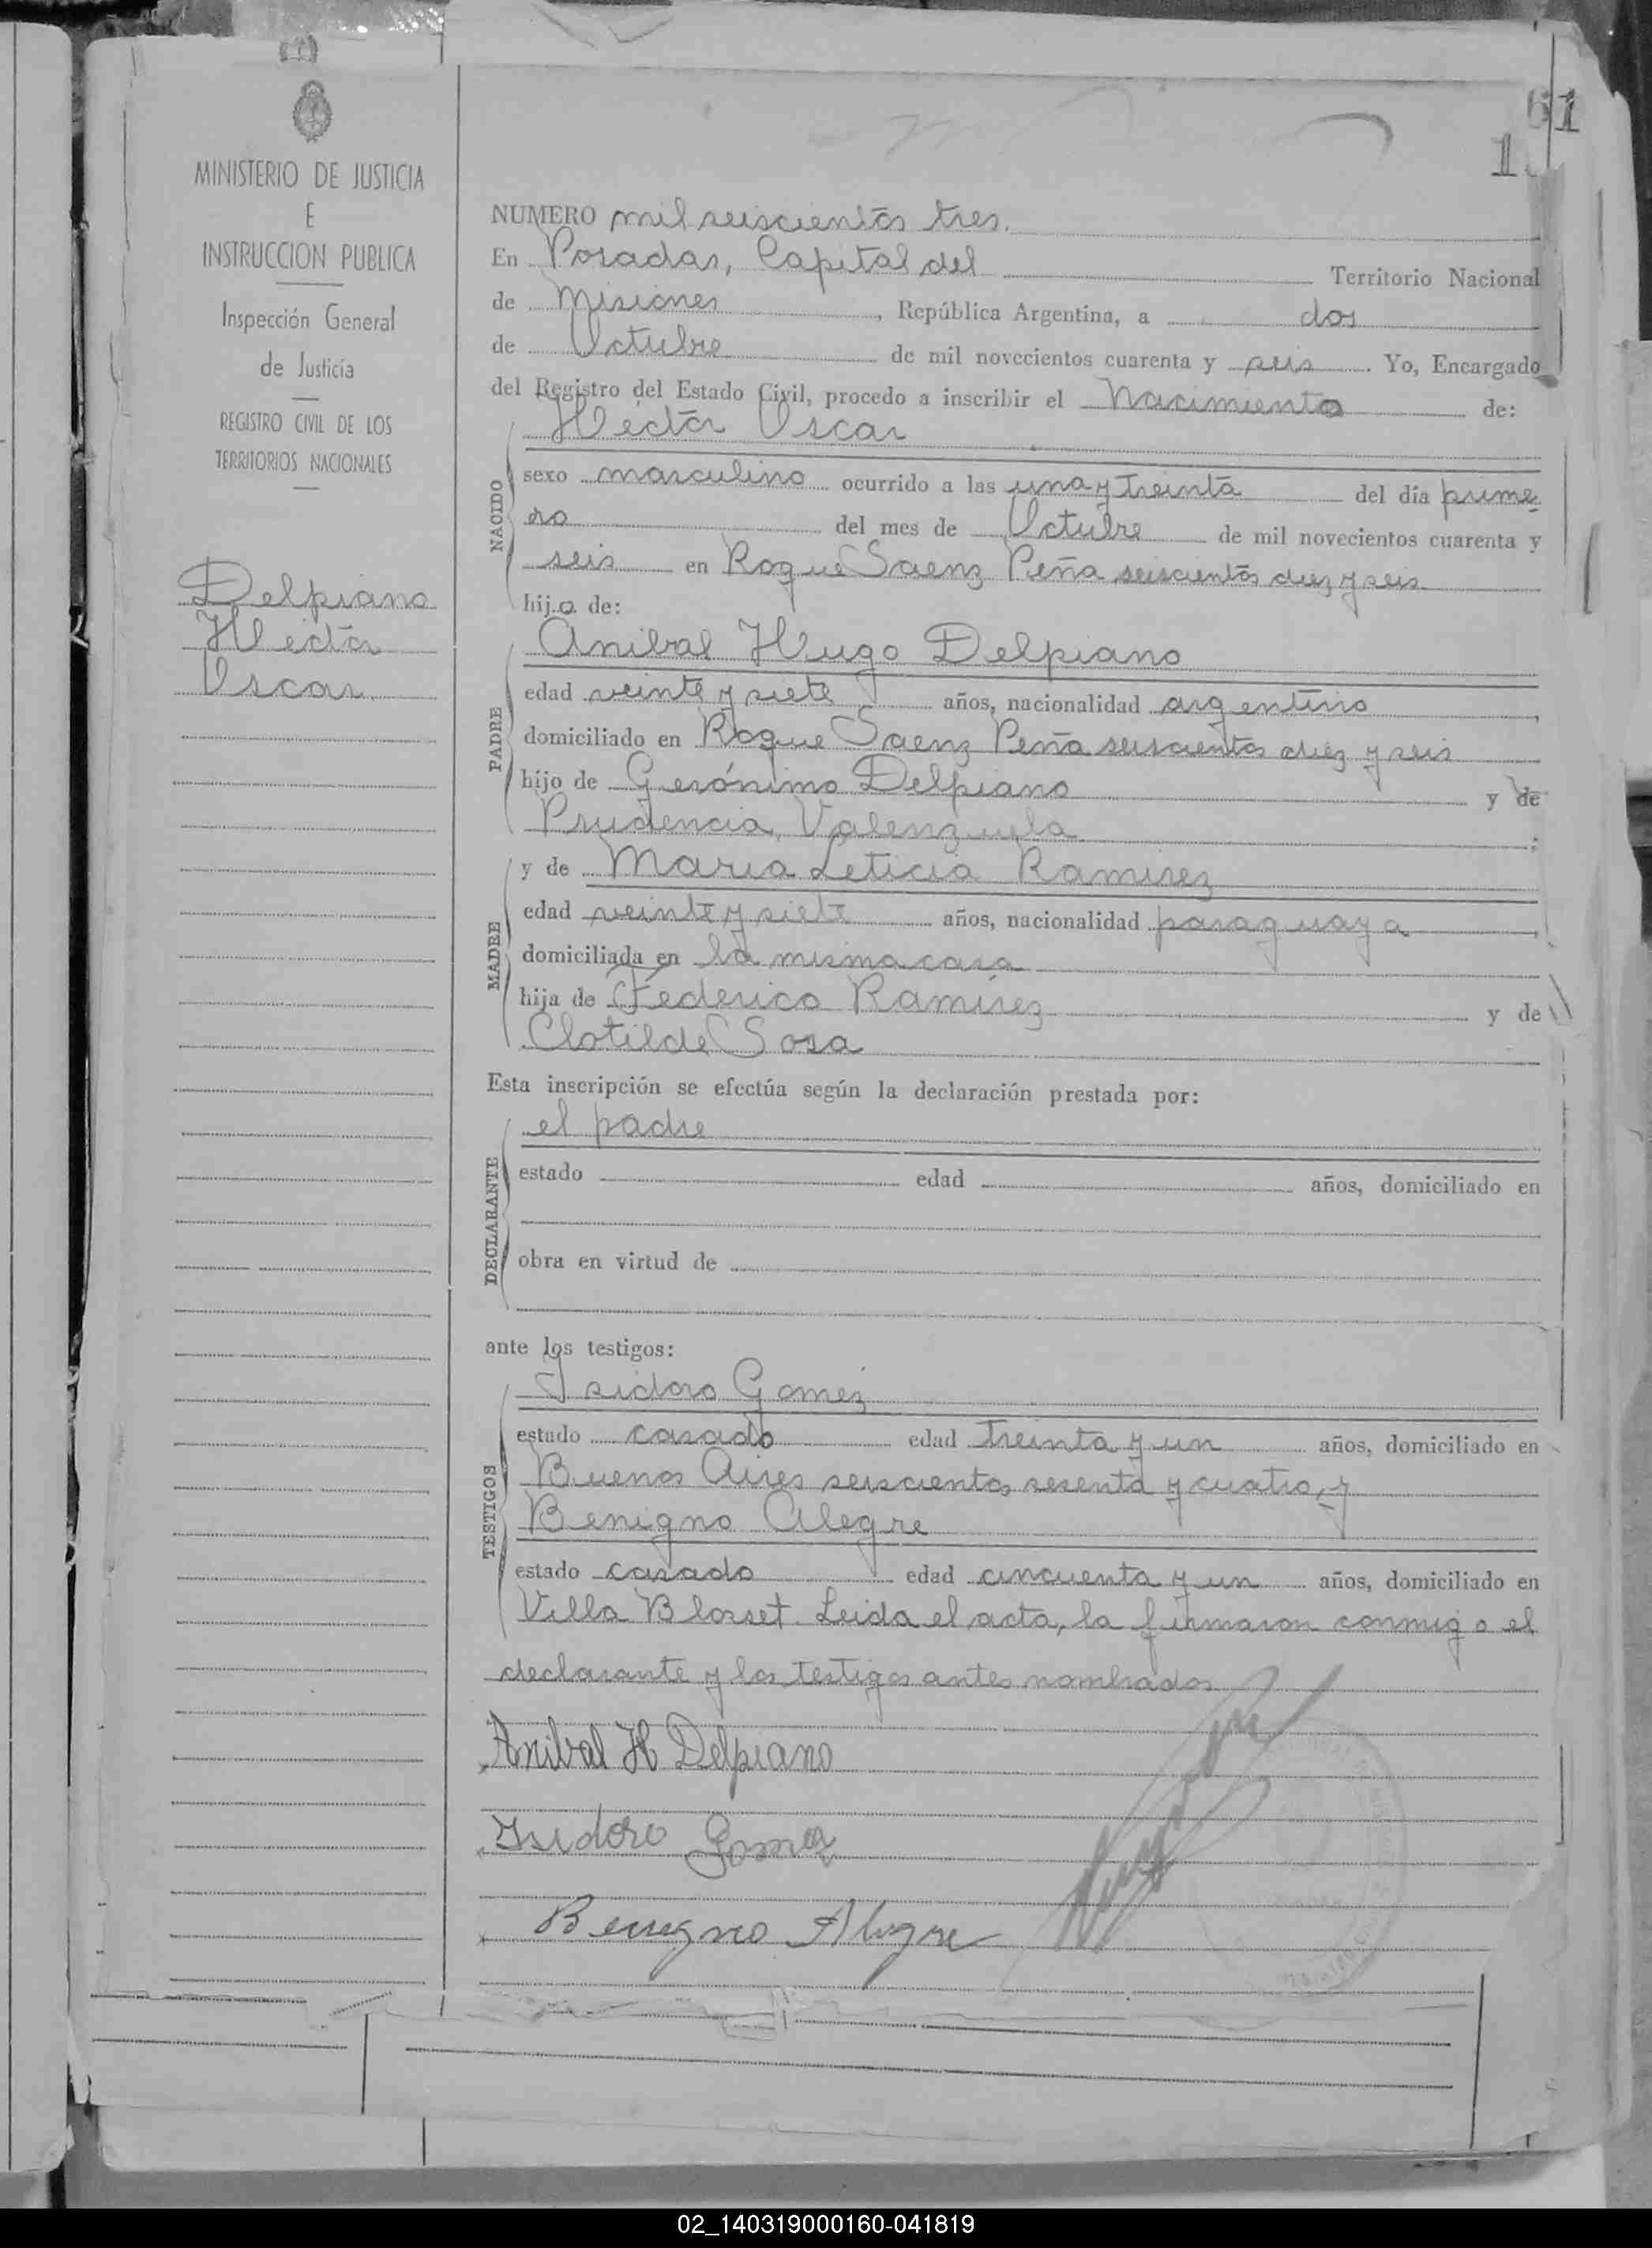 61
1
MINISTERIO DE JUSTICIA
E
INSTRUCCION PUBLICA
Inspección General
de Justicia
REGISTRO CIVIL DE LOS
TERRITORIOS NACIONALES
Delpiano
Héctor
Oscar
NUMERO mil seiscientos tres.
En Posadas, Capital del Territorio Nacional
de Misiones, República Argentina, a dos
de Octubre de mil novecientos cuarenta y seis. Yo, Encargado
del Registro del Estado Civil, procedo a inscribir el Nacimiento de:
NACIDO
Héctor Oscar
sexo masculino ocurrido a las una y treinta del día prime
ro del mes de Octubre de mil novecientos cuarenta y
seis en Roque Saenz Peña seiscientos diez y seis
hijo de:
PADRE
Anibal Hugo Delpiano
edad veinte y siete años, nacionalidad argentino,
domiciliado en Roque Saenz Peña seiscientos diez y seis
hijo de Gerónimo Delpiano y de
Prudencia Valenzuela;
MADRE
y de Maria Leticia Ramirez
edad veinte y siete años, nacionalidad paraguaya,
domiciliada en la misma casa
hija de Federico Ramírez y de
Clotilde Sosa
Esta inscripción se efectúa según la declaración prestada por:
DECLARANTE
el padre
estado edad años, domiciliado en
obra en virtud de
ante los testigos:
TESTIGOS
Isidoro Gomez
estado casado edad treinta y un años, domiciliado en
Buenos Aires seiscientos sesenta y cuatro, y
Benigno Alegre
estado casado edad cincuenta y un años, domiciliado en
Villa Blosset. Leida el acta, la firmaron conmigo el
declarante y los testigos antes nombrados
Anibal H Delpiano
Isidoro Gomez
Benigno Alegre
02_140319000160-041819